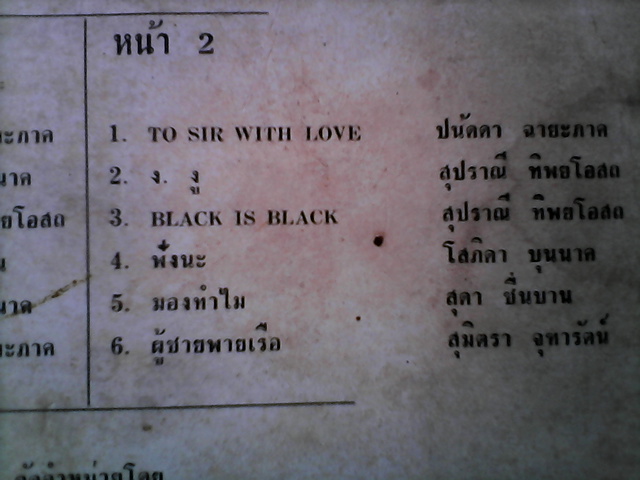 หน้า 2
1. TO SIR WITH LOVE ปนัดดา ฉายะภาค
2. ง. งู สุปราณี ทิพยโอสถ
3. BLACK IS BLACK สุปราณี ทิพยโอสถ
4. พั่งนะ โสภิตา บุนนาค
5. มองทำไม สุดา ชื่นบาน
6. ผู้ชายพายเรือ สุมิตรา จุฑารัตน์